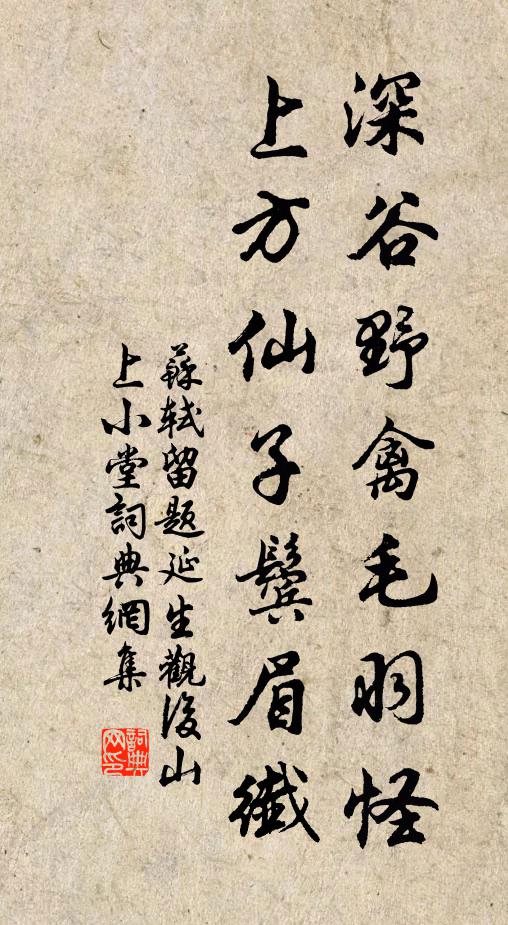 深谷野禽毛羽怪
上方仙子鬢眉纖
蘇軾留題延生觀後山
上小堂詞典網集
詞典網印